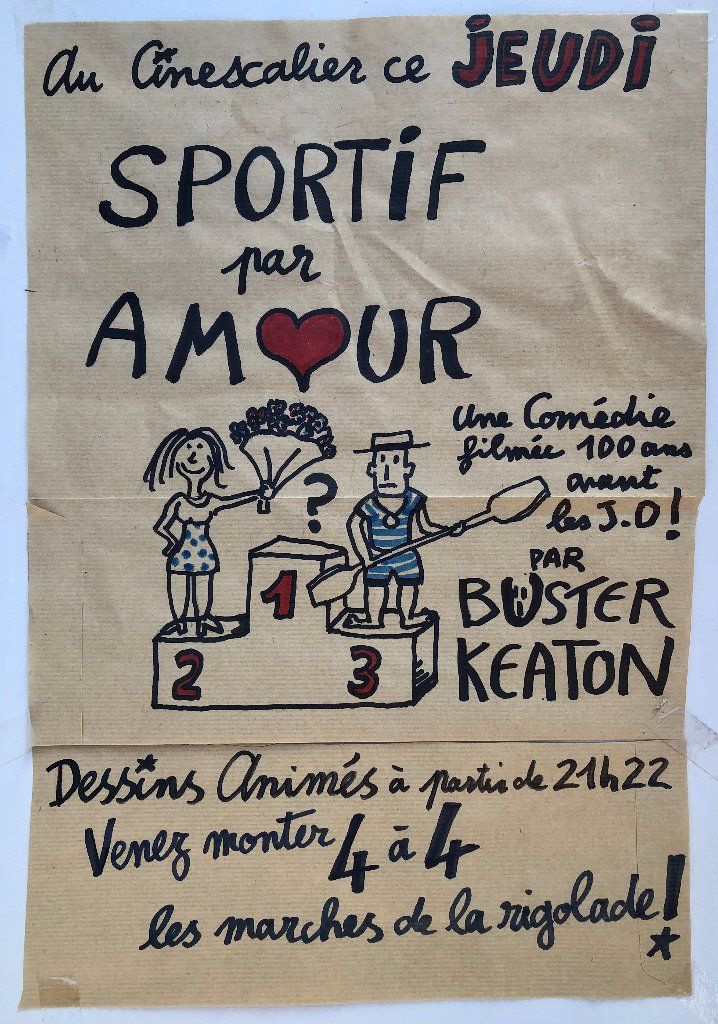 Au Cinescalier ce JEUDI
SPORTIF
par
AMOUR
Une Comédie
filmée 100 ans
avant
les J.O!
PAR
BUSTER
KEATON
?
1
2
3
Dessins Animés à partir de 21h22
Venez monter 4 à 4
les marches de la rigolade!